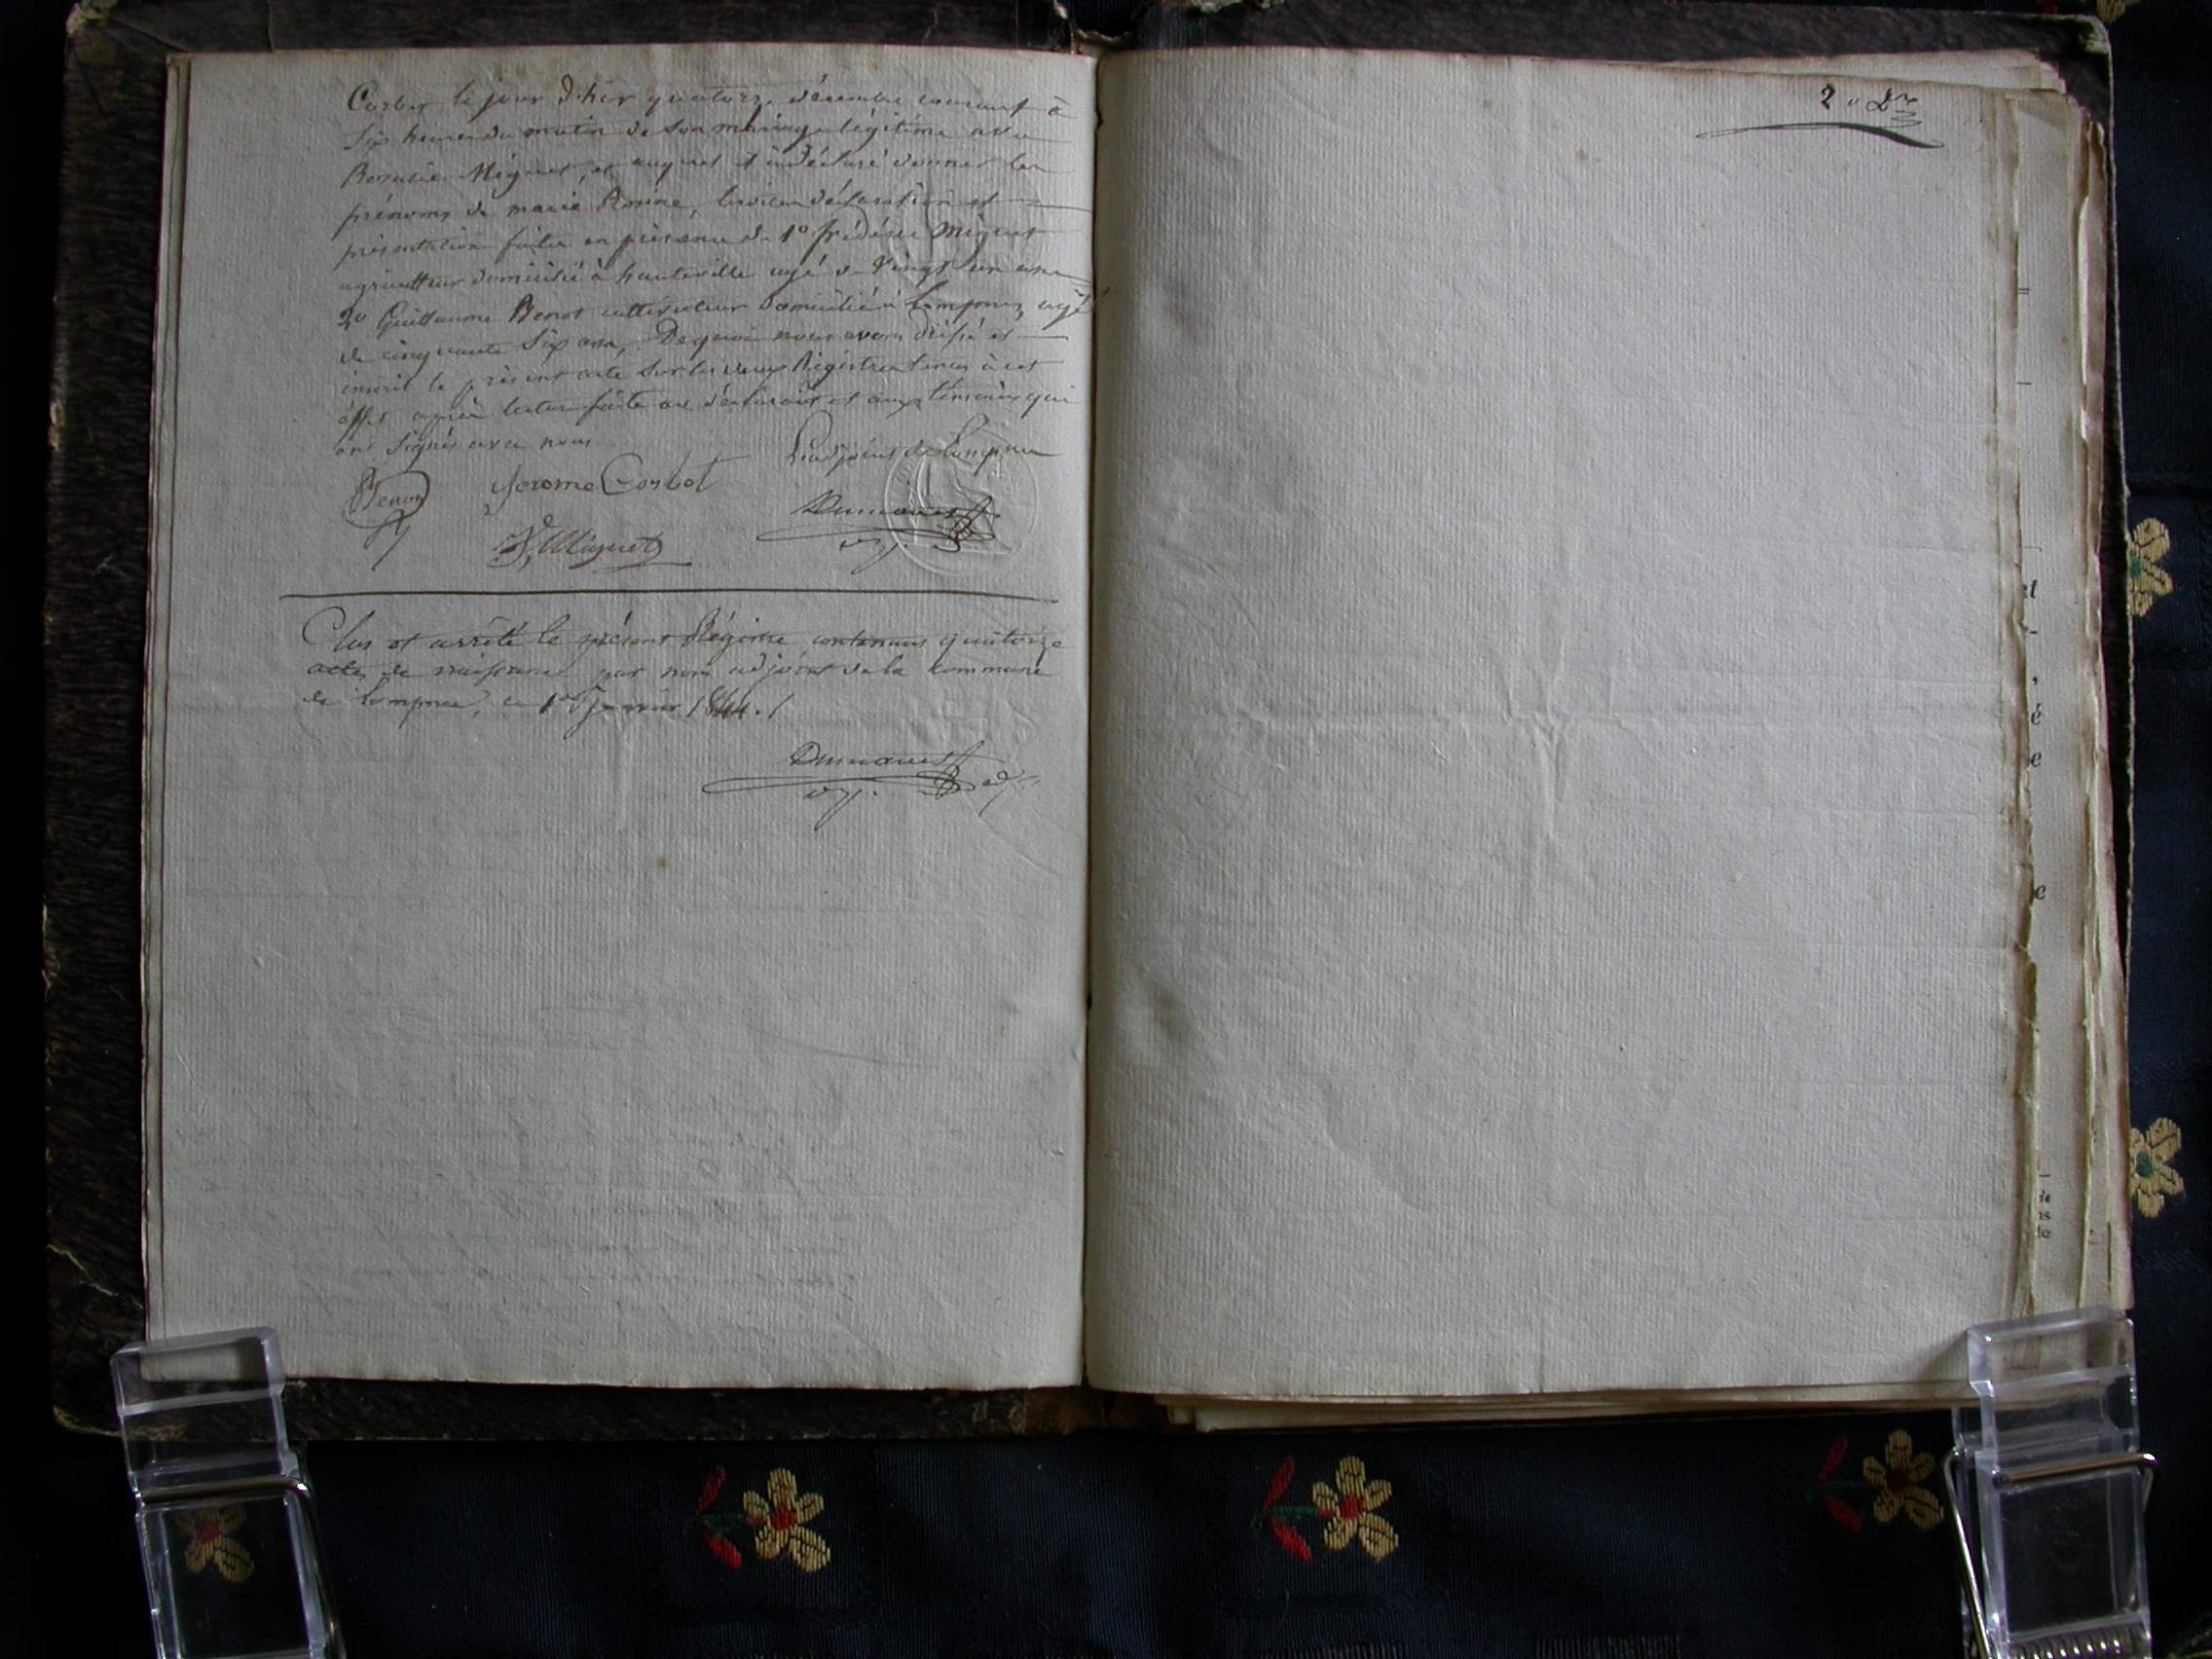 Corbet le jour d'hier quatorze décembre courant à
six heures du matin de son mariage légitime avec
Rosalie Miguet, et auquel il a déclaré donner les
prénoms de marie Rosine, lesdites déclaration et
présentation faites en présence de 1o frédéric Miguet
agriculteur domicilié à hauteville agé de vingt un ans
2o Guillaume Benot cultivateur domicilié à Lompnes agé
de cinquante six ans, De quoi nous avons dréssé et
inscrit le présent acte sur les deux Régistres tenus à cet
effet après lecture faite au déclarant et aux témoins qui
ont signés avec nous
L'adjoint de Lompnes
Benot Jerome Corbet
Dumarest
adj.
F. Miguet
Clos et arrêté le présent Régistre contenant quatorze
actes de naissance par nous adjoint de la Commune
de Lompnes, le 1er Janvier 1844./
Dumarest
adj.
2
et
é
e
e
de
ns
de